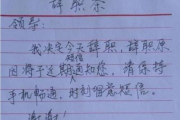 辞职条
领导:
我决定今天辞职,辞职原
因将于近期短信通知您,请保持
手机畅通,时刻留意短信。
谢谢!